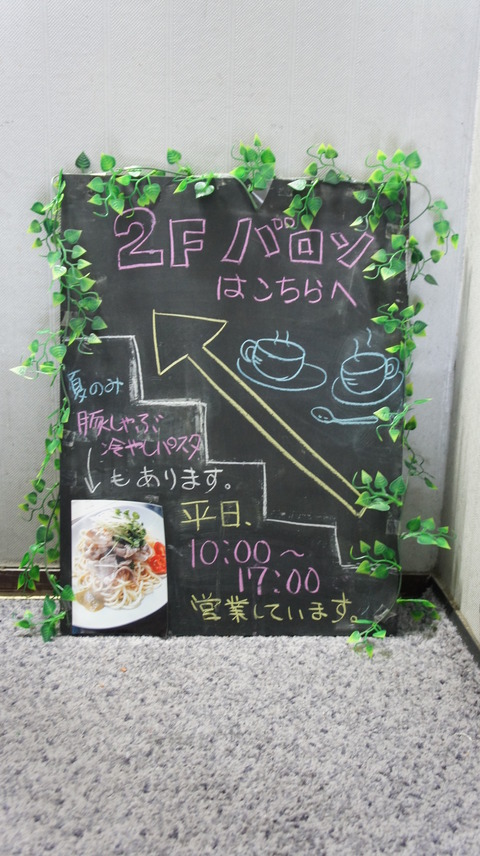 2F バロン
はこちらへ
夏のみ
豚しゃぶ
冷やしパスタ
もあります。
平日、
10:00～
17:00
営業しています。